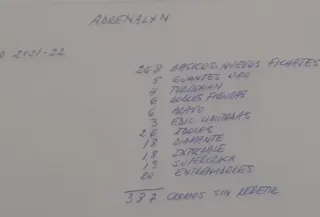 ADRENALYN
O 2021-22
268 BASICOS+NUEVOS FICHAJES
5 GUANTES ORO
4
6 DOBLES FIGURAS
6
3 EDIC. LIMITADAS
26 IDOLOS
18 DIAMANTE
18
13 SUPERCRACK
20 ENTRENADORES
387 CROMOS SIN REPETIR